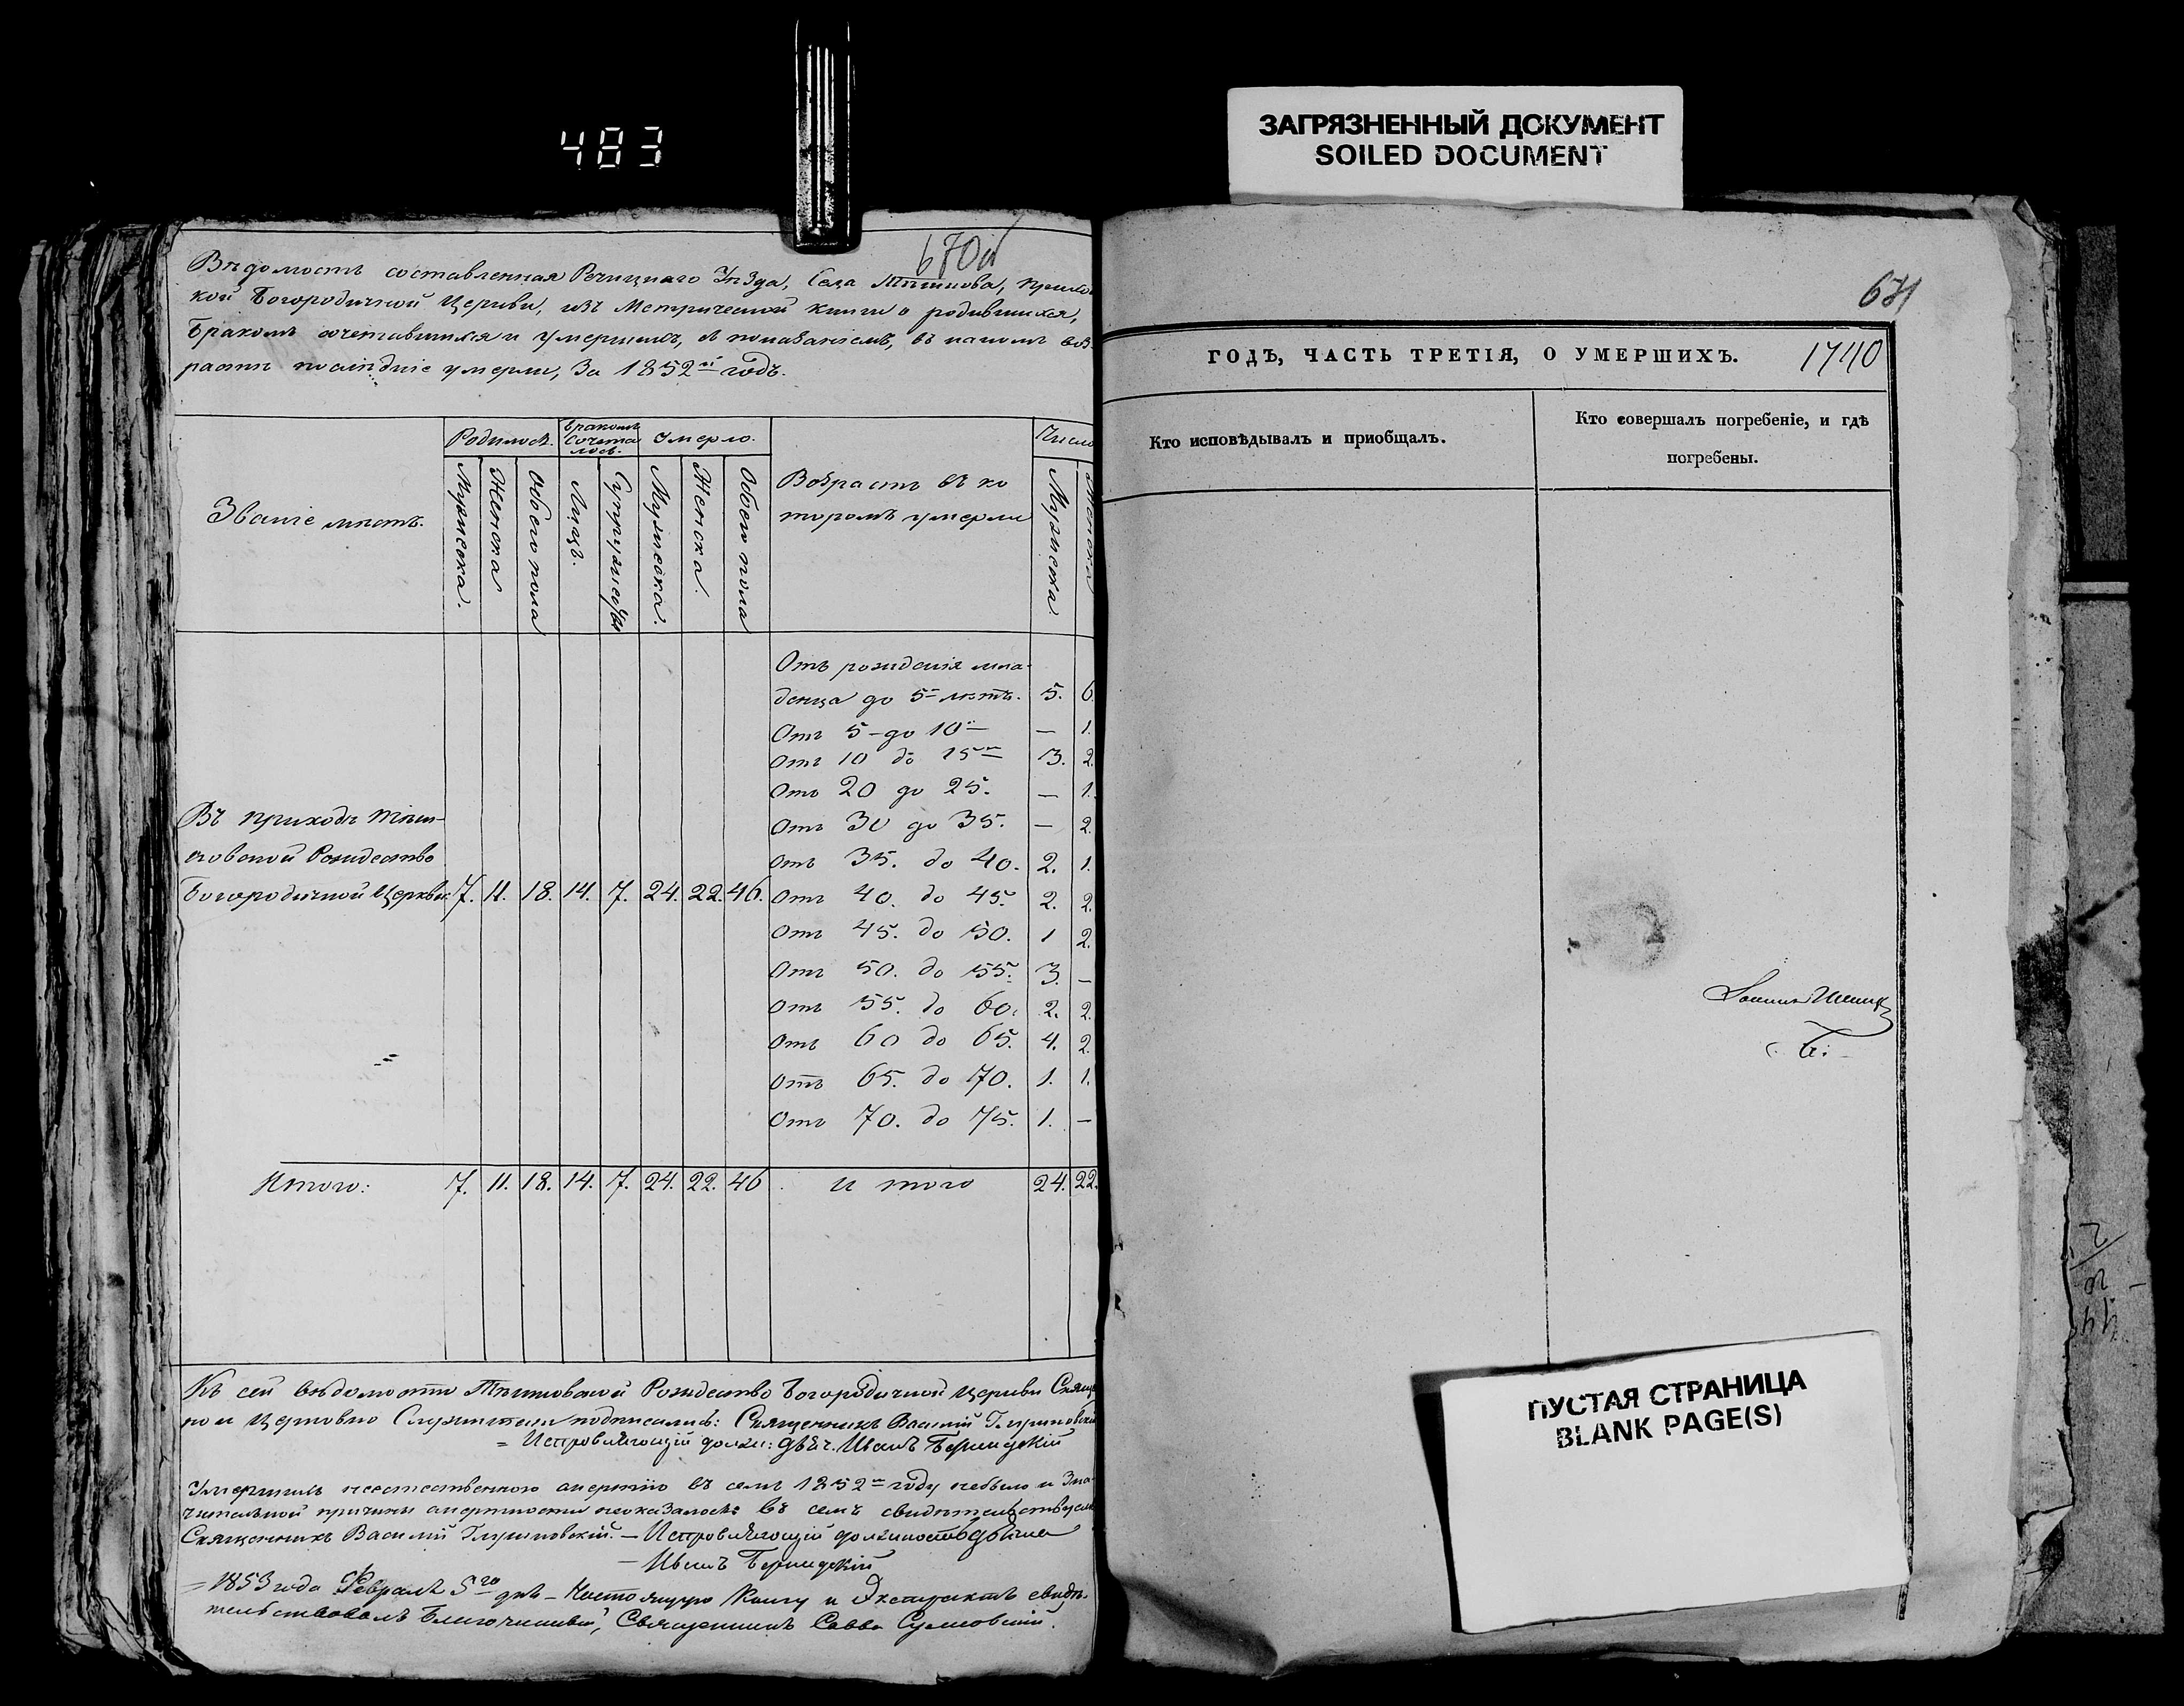 483
ЗАГРЯЗНЕННЫЙ ДОКУМЕНТ
SOILED DOCUMENT
670
Вѣдомость составленная Речицкаго Уѣзда, Села
кой Богородичной Церкви, изъ Метрической книги о родившихся,
бракомъ сочетавшихся и умершихъ, съ показаніемъ, въ какомъ воз
растѣ послѣдніе умерли, За 1852й годъ.
Званіе мѣстъ.
Родилось.
Бракомъ Сочета лось.
Умерло.
Возрастъ въ ко
торомъ умерли
Число
Мужеска.
Женска
Обоего пола
Лицъ.
Супружествъ
Мужеска.
Женска.
Обоего пола
Мужеска.
Женска
Отъ рожденія мла-
денца до 5 лѣтъ. 5. 6.
Отъ 5 до 10 — 1.
Отъ 10 до 15 3. 2.
Отъ 20 до 25. — 1.
Отъ 30 до 35. — 2.
Отъ 35. до 40. 2. 1.
Отъ 40. до 45. 2. 2.
Отъ 45. до 50. 1 2.
Отъ 50. до 55. 3. —
Отъ 55. до 60. 2. 2.
Отъ 60 до 65. 4. 2.
Отъ 65. до 70. 1. 1.
Отъ 70. до 75. 1. —
Въ приходѣ
Рождество
Богородичной Церкви. 7. 11. 18. 14. 7. 24. 22. 46.
Итого: 7. 11. 18. 14. 7. 24. 22. 46 и того 24. 22.
Къ сей вѣдомости Рождество Богородичной Церкви Свящ
но и Церковно Служители подписались: Священникъ Василій
= Исправляющій долж: дьяч. Иванъ
Умершихъ неестественною смертію въ семъ 1852м году небыло и Зна-
чительной причины смертности неоказалось: въ семъ свидѣтельствуемъ
Священникъ Василій — Исправляющій должность дьячка
— Иванъ
= 1853 года Февраля 5го дня — Настоящую Книгу и Экстрактъ свидѣ-
тельствовалъ Благочинный, Священникъ Савва
631
ГОДЪ, ЧАСТЬ ТРЕТІЯ, О УМЕРШИХЪ. 1740
Кто исповѣдывалъ и приобщалъ.
Кто совершалъ погребеніе, и гдѣ
погребены.
ПУСТАЯ СТРАНИЦА
BLANK PAGE(S)